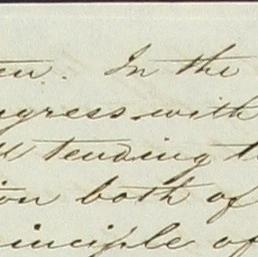 In the
ngress with
tending t
ion both of
inciple of